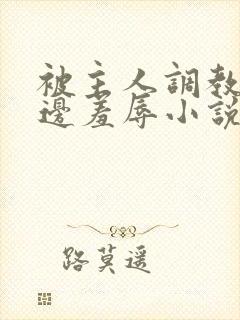 被主人調教
邊羞辱小說
路莫遥